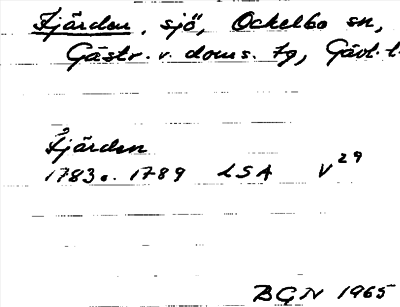 Fjärden, sjö, Ockelbo sn,
Gästr. v. doms. tg, Gävl. l.
Fjärden
1783 o. 1789 LSA V29
BGN 1965